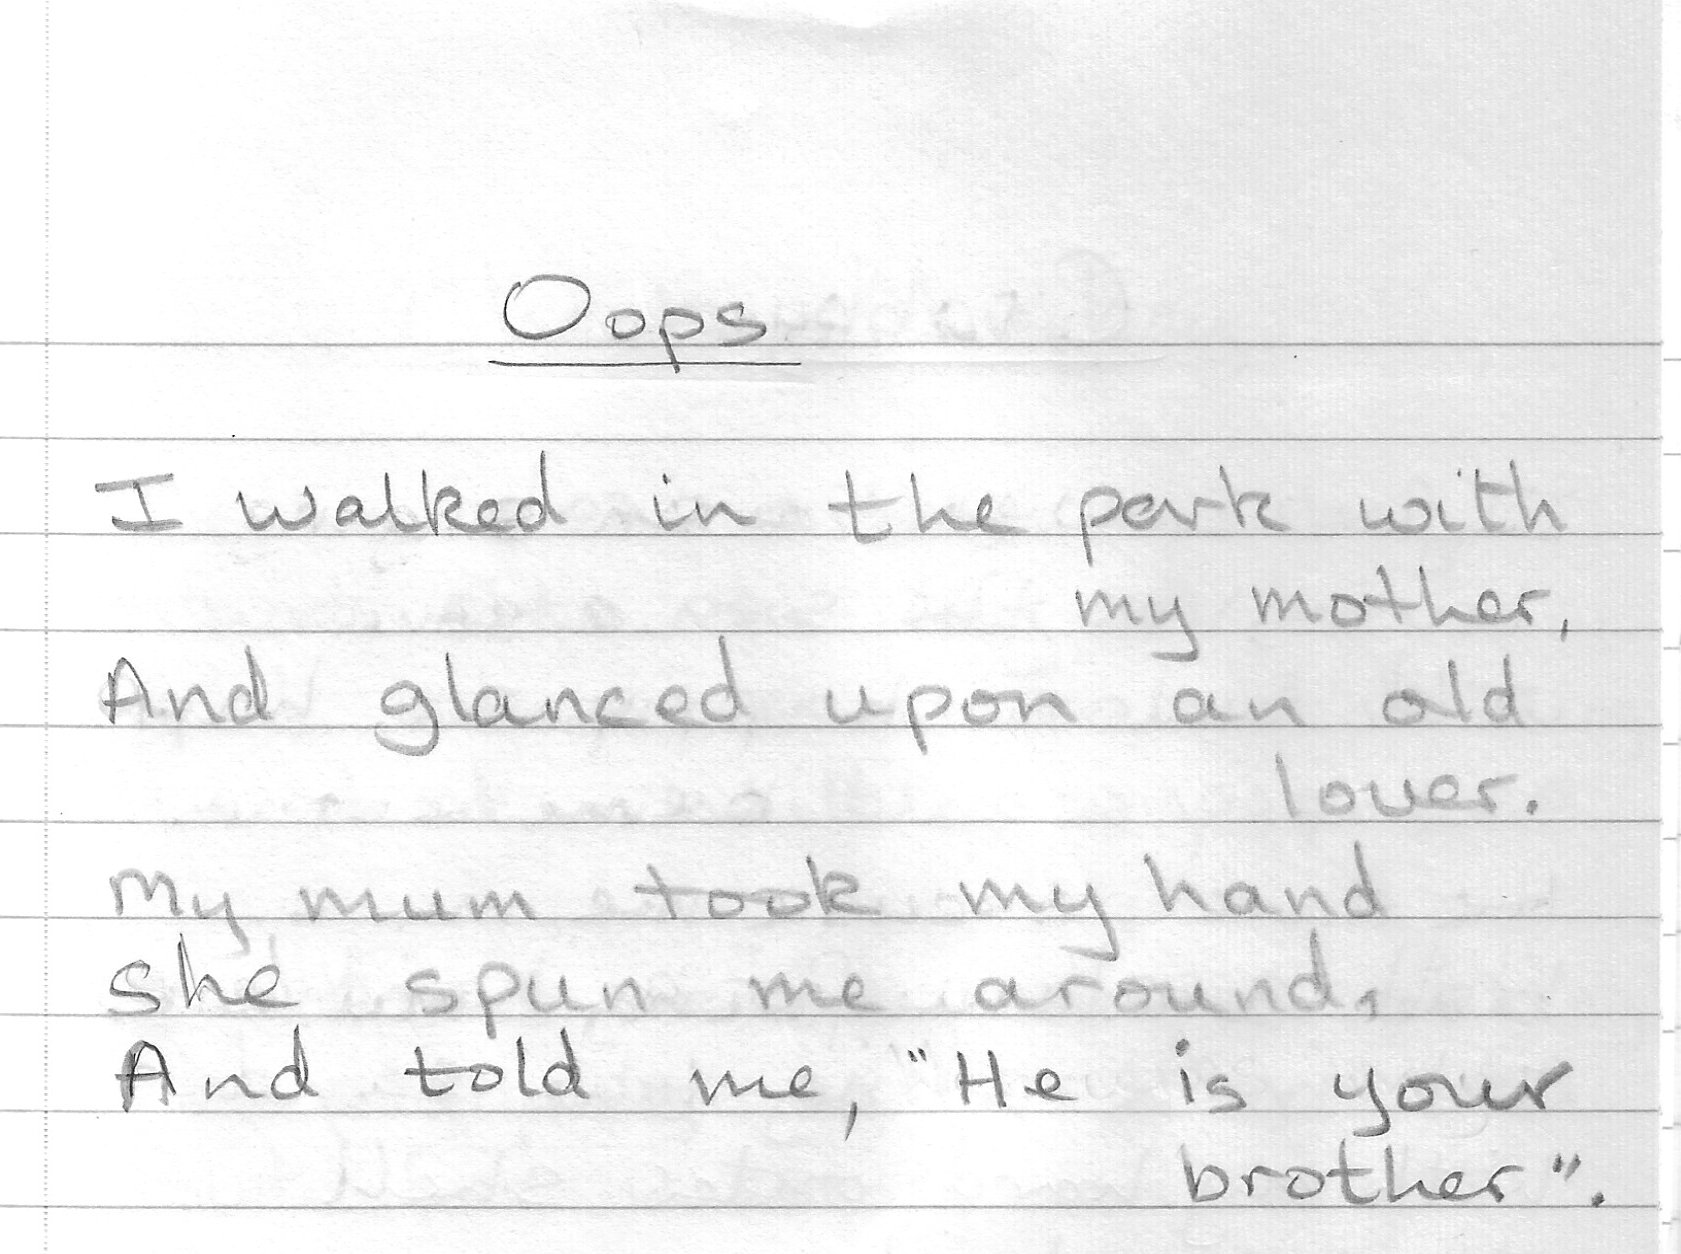 Oops
I walked in the park with
my mother,
And glanced upon an old
lover.
My mum took my hand
she spun me around,
And told me, "He is your
brother".